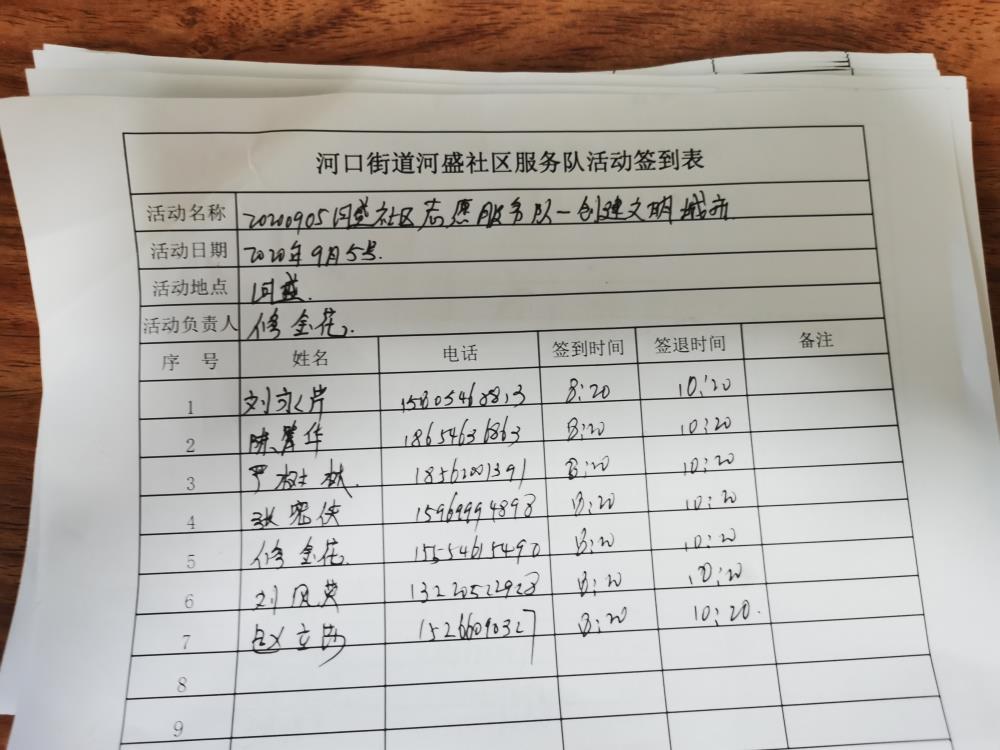 河口街道河盛社区服务队活动签到表
活动名称 20200905河盛社区志愿服务队一创建文明城市
活动日期 2020年9月5号.
活动地点 河盛.
活动负责人 修金花.
序 号 姓名 电话 签到时间 签退时间 备注
1 刘永芹 8:20 10:20
2 陈 华 8:20 10:20
3 严树林. 8:20 10:20
4 张密侠 15969994898 8:20 10:20
5 修金花. 15554615490 8:20 10:20
6 刘凤英 13220522928 8:20 10:20
7 赵立莎 15266090327 8:20 10:20.
8
9